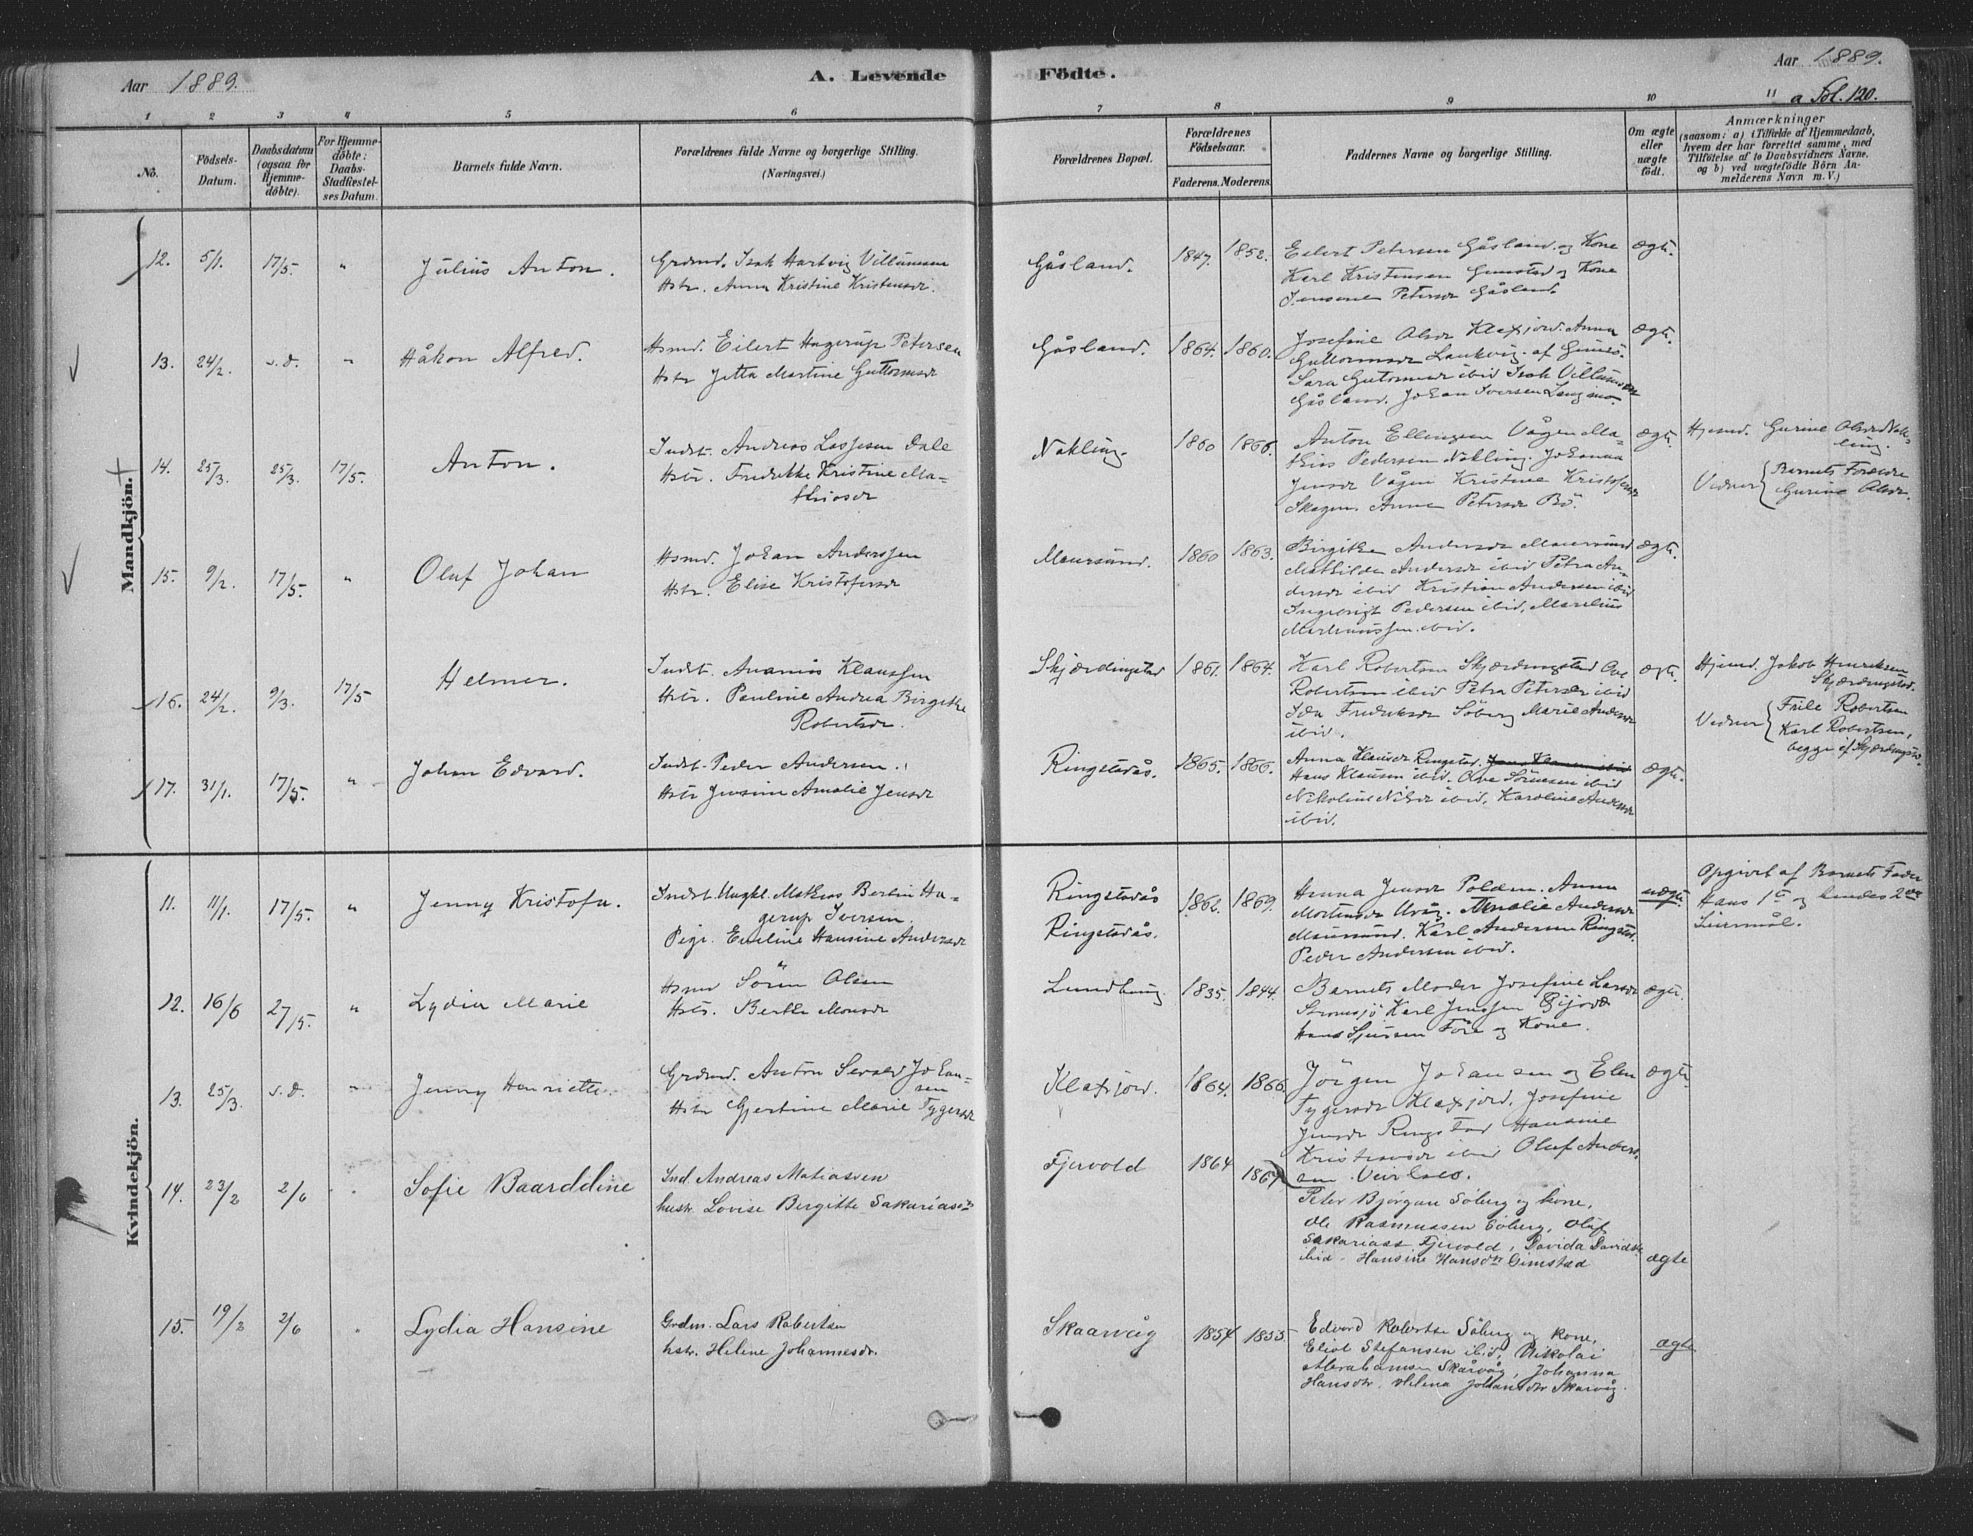 Aar 1889.
A. Levende
Födte.
Aar 1889.
a Fol. 120.
1 2 3 4 5 6 7 8 9 10 11
No.
Födsels-Datum.
Daabsdatum (ogsaa for Hjemme-döbte).
For Hjemme-döbte: Daabs-Stadfæstel-ses Datum.
Barnets fulde Navn.
Forældrenes fulde Navne og borgerlige Stilling.
(Næringsvei.)
Forældrenes Bopæl.
Forældrenes Födselsaar.
Faderens. Moderens.
Faddernes Navne og borgerlige Stilling.
Om ægte eller uægte födt.
Anmærkninger
(saasom: a) i Tilfælde af Hjemmedaab,
hvem der har forrettet samme, med
Tilföielse af to Daabsvidners Navne.
og b) ved uægtefödte Börn An-
melderens Navn m. V.)
Mandkjön.
12. 5/1. 17/5. " Julius Anton.
Grdmd. Isak Hartvig Villumsen
Hstr. Anna Kristine Kristensdr.
Gåsland. 1847. 1852.
Eilert Petersen Gåsland og Kone
Karl Kristensen Gimstad og Kone
Jensine Petersdr Gåsland.
ægte.
13. 24/2. s.d. " Håkon Alfred.
Hsmd. Eilert Hagerup Petersen
Hstr Jetta Martine Guttormsdr
Gåsland. 1864. 1860.
Josefine Olsdr Klaxjord. Anna
Guttormsdr Laukvig af Gimsö.
Sara Gutormsdr ibid Isak Villumsen
Gåsland. Johan Iversen Langmo.
ægte.
14. 25/3. 25/3. 17/5. Anton.
Indst. Andreas Lassesen Dale
Hstr. Fredrikke Kristine Ma-
thiasdr
Nakling. 1860 1866.
Anton Ellingsen Vågen Ma-
thias Pedersen Nakling. Johanna
Jensdr Vågen Kristine Kristofersdr
Skagen. Anne Petersdr Bö.
ægte.
Hjemd. Gurine Olsdr Nak-
ling.
Vidner { Barnets Forældre
Gurine Olsdr.
15. 9/2. 17/5. " Oluf Johan
Hsmd. Johan Anderssen
Hstr. Elise Kristofersdr
Maursund. 1860 1863.
Birgithe Andersdr Maursund
Mathilde Andersdr ibid Petra An-
dersdr ibid Kristian Andersen ibid
Ingebrigt Pedersen ibid, Marelius
Martinussen ibid.
ægte.
16. 24/2. 9/3. 17/5 Helmer.
Indst. Ananias Klaussen
Hstr. Pauline Andrea Birgithe
Robertsdr.
Skjærdingstad 1861. 1864.
Karl Robertsen Skjærdingstad Ove
Robertsen ibid Petra Petersdr ibid
Ida Fredriksdr Söberg Marie Andersdr
ibid.
ægte.
Hjemd. Jakob Henriksen
Skjærdingstad.
Vidner { Frile Robertsen
Karl Robertsen,
begge af Skjærdingstad.
17. 31/1. 17/5. " Johan Edvard.
Indst. Peder Andersen.
Hstr Jensine Amalie Jensdr
Ringstadås. 1865. 1866.
Anna Klausdr Ringstad.
Hans Klausen ibid. Ove Sörensen ibid
Nikoline Nilsdr ibid, Karoline Andersdr
ibid.
ægte.
Kvindekjön.
11. 11/1. 17/5. " Jenny Kristofa.
Indst. Ungkl. Mathias Bertin Ha-
gerup Iversen.
Pige. Emeline Hansine Andersdr
Ringstadås
Ringstadås. 1862. 1869.
Hanna Jensdr Polden. Anna
Mortensdr Uråg. Amalie Andersdr
Maursund. Karl Andersen Ringstad.
Peder Andersen ibid.
uægte.
Opgivet af Barnets Fader
Hans 1ste og hendes 2det
Leiermål.
12. 16/6 27/5. " Lydia Marie
Hsmd Sören Olsen
Hstr. Berthe Monsdr
1835. 1844.
Barnets Moder Josefine Larsdr
Straumsjö Karl Jenssen
Hans Sjursen Före og Kone.
ægte.
13. 25/3. s.d. " Jenny Henriette.
Grdmd. Anton Sevald Johan-
sen
Hstr Gjertine Marie Tygersdr
Klaxjord. 1864. 1866.
Jörgen Johansen og Elen
Tygersdr Klaxjord, Josefine
Jensdr Ringstad Hansine
Kristensdr ibid Oluf Anders-
sen
ægte
14. 23/2 2/6 Sofie Baarddine
Ind Andreas Matiassen
hustr. Lovise Bergitte Sakariasdr
Fjervold 1864 1864
Peter Björgan Söberg og kone,
Ole Rasmussen Söberg, Oluf
Sakariass Fjervold, Davida Davidsdr
ibid. Hansine Hansdtr Gimstad
ægte
15. 19/2 2/6 Lydia Hansine
Grdm. Lars Robertsen
hstr. Helene Johannesdr.
Skaarvåg 1854 1855
Edvard Robertse Söberg og kone,
Eliot Stefansen ibid, Nikolai
Abrahamsen Skårvåg, Johanna
Hansdtr, Helena Johansdtr Skarvåg.
ægte